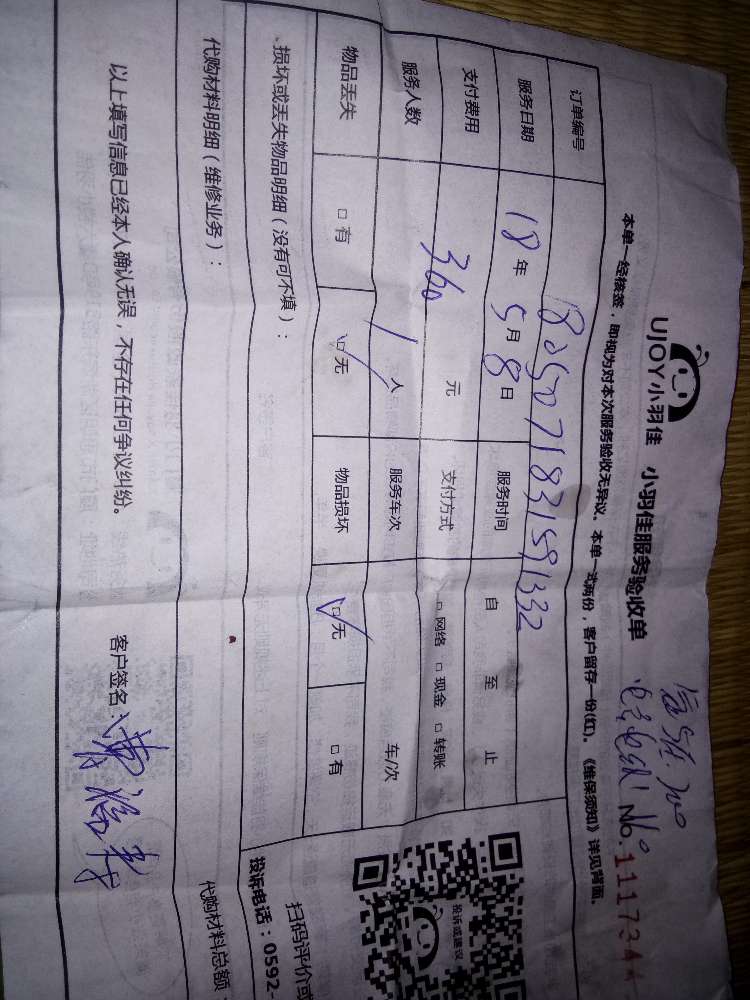 UJOY小羽佳 小羽佳服务验收单
No.111734
本单一经核签，即视为对本次服务验收无异议。本单一式两份，客户留存一份(红)。《维保须知》详见背面。
订单编号 1805071831591332
服务日期 18年5月8日 服务时间 自 至 止
支付费用 360 元 支付方式 □网络 □现金 □转账
服务人数 1人 服务车次 车/次
物品丢失 □有 □无 物品损坏 □无 □有
损坏或丢失物品明细（没有可不填）：
代购材料明细（维修业务）：
代购材料总额
以上填写信息已经本人确认无误，不存在任何争议纠纷。 客户签名：
投诉或建议
扫码评价或
投诉电话：0592-